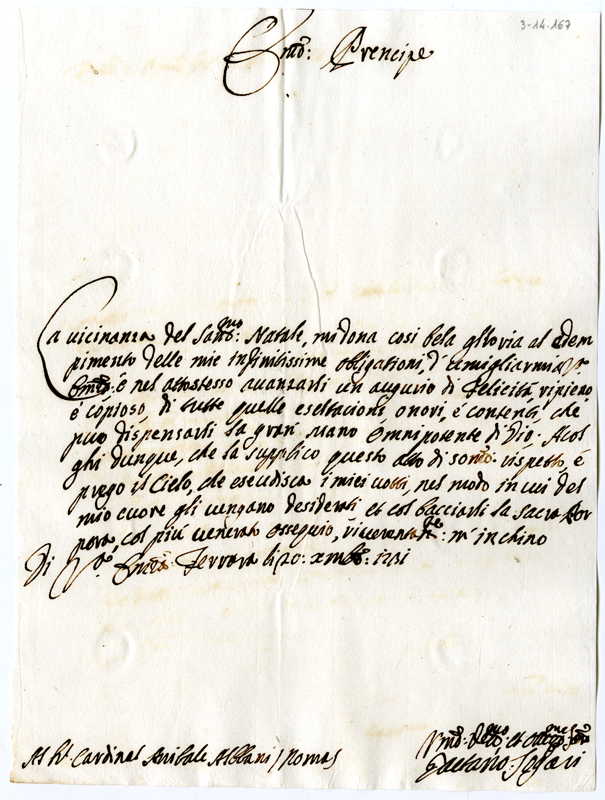 3-14-167
Em̃o: Prencipe
La vicinanza del San.mo: Natale, mi dona cosi bela glloria al edem
pimento delle mie infinitissime obligationi, d'umigliarmi a V.a
Em̃a: e nel atostesso avanzarli un augurio di Felicità, ripieno
é copioso, di tutte quelle eseltacioni, onori, é contenti, che
puo dispensarli la gran mano Omnipotente di Dio. Acol
ghi dunque, che la supplico questo atto di som̃o: rispetto, é
prego il Cielo, che eseudisca i miei votti, nel modo in cui del
mio cuore gli vengano desiderati et col bacciarli la sacra Por
pora, col più venerato ossequio, riverentem.te: m'inchino
Di V.a Em̃a: Ferrara li 20: xmbre: 1731
Al Sr. Cardinal Anibale Albani / Roma
Um̃o: et
Gaetano